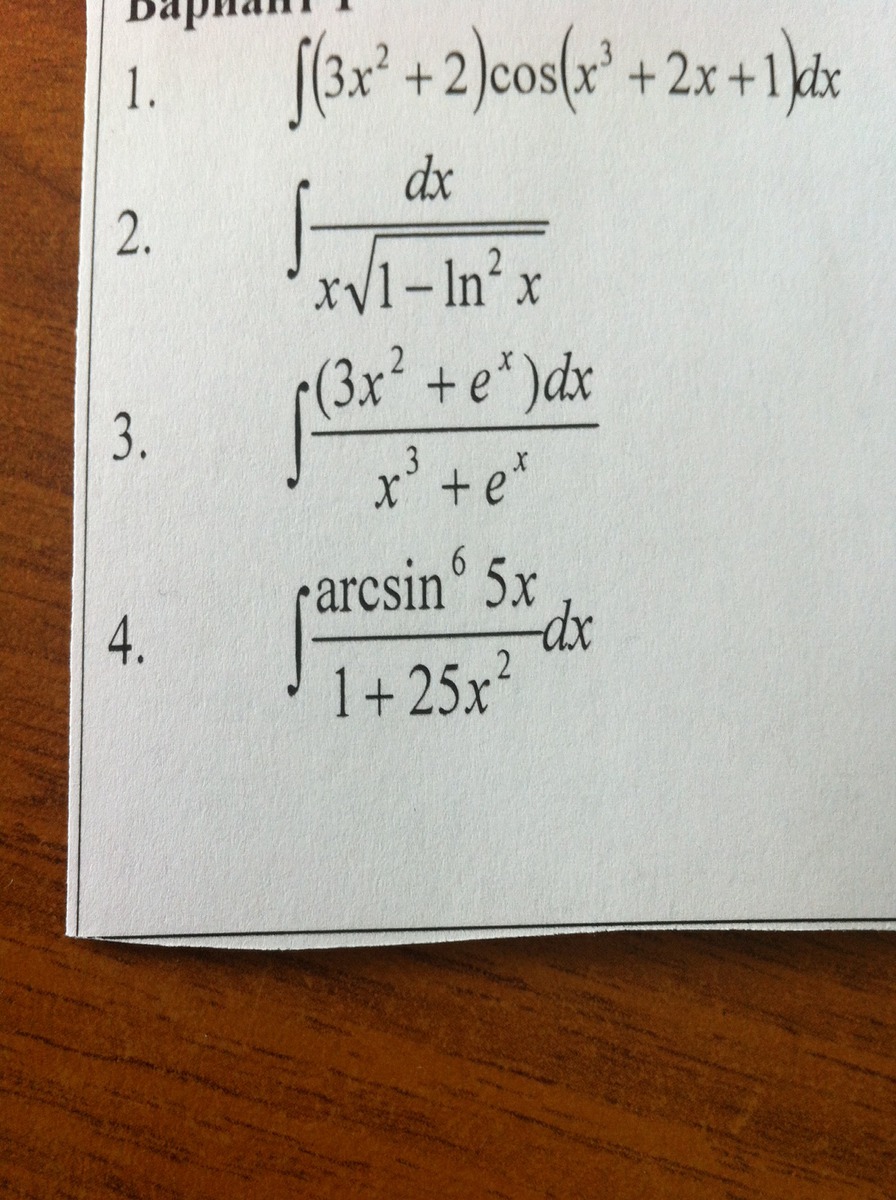 Вариант 1
1. ∫(3x² + 2)cos(x³ + 2x + 1)dx
2. ∫ dx / (x√(1 − ln² x))
3. ∫ (3x² + eˣ)dx / (x³ + eˣ)
4. ∫ (arcsin⁶ 5x) / (1 + 25x²) dx